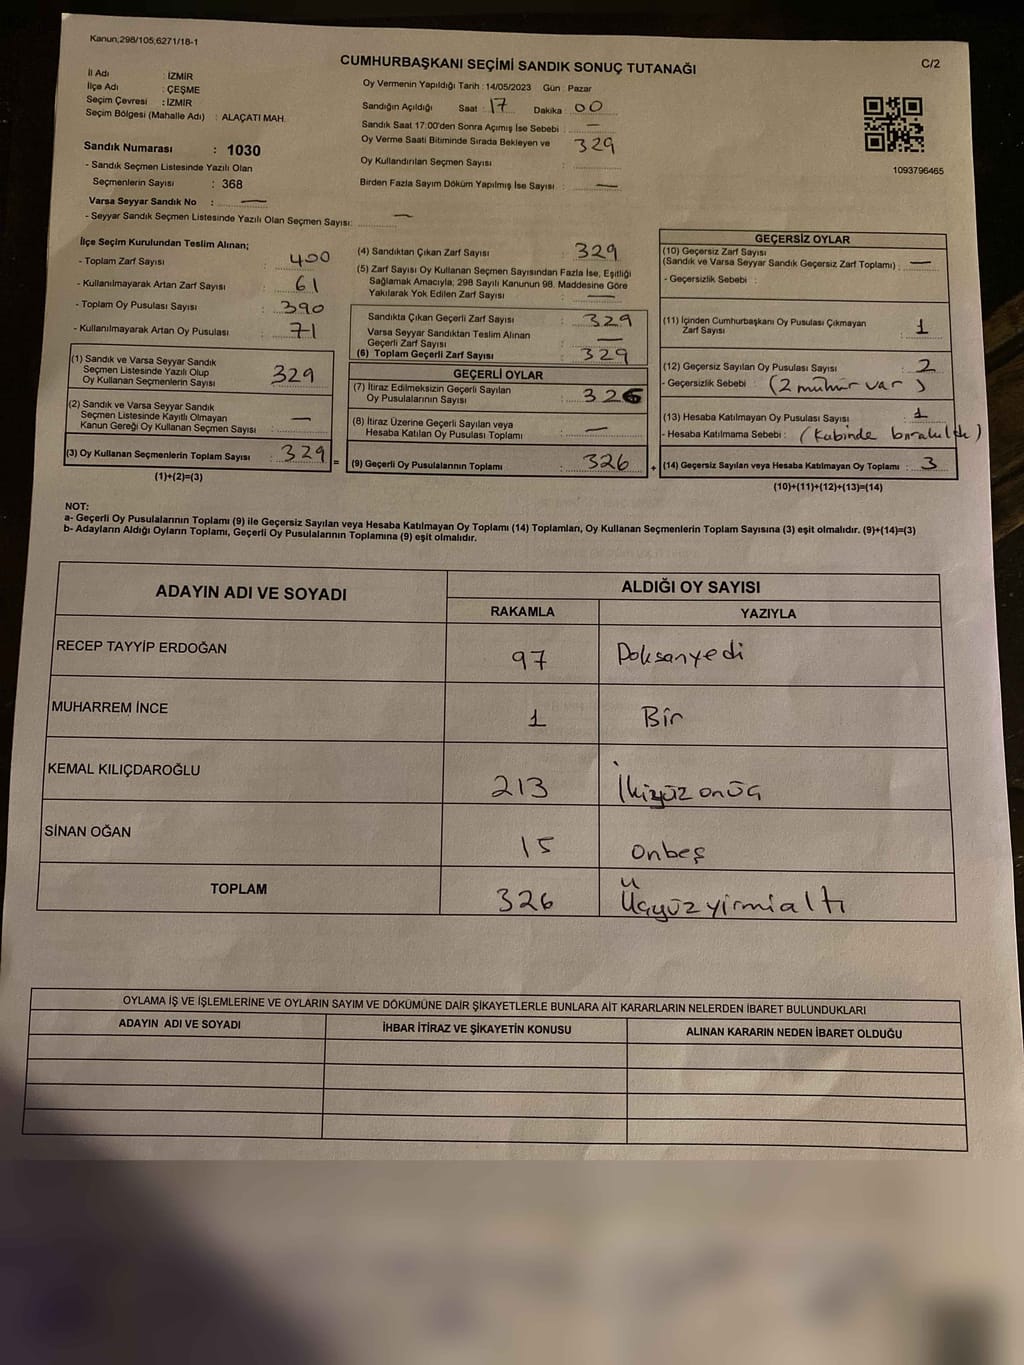 Kanun;298/105,6271/18-1
CUMHURBAŞKANI SEÇİMİ SANDIK SONUÇ TUTANAĞI
C/2
İl Adı : İZMİR
İlçe Adı : ÇEŞME
Seçim Çevresi : İZMİR
Seçim Bölgesi (Mahalle Adı) : ALAÇATI MAH.
Sandık Numarası : 1030
- Sandık Seçmen Listesinde Yazılı Olan
Seçmenlerin Sayısı : 368
Varsa Seyyar Sandık No : —
- Seyyar Sandık Seçmen Listesinde Yazılı Olan Seçmen Sayısı: —
Oy Vermenin Yapıldığı Tarih : 14/05/2023 Gün : Pazar
Sandığın Açıldığı Saat : 17 Dakika : 00
Sandık Saat 17:00'den Sonra Açımış İse Sebebi : —
Oy Verme Saati Bitiminde Sırada Bekleyen ve
Oy Kullandırılan Seçmen Sayısı : 329
Birden Fazla Sayım Döküm Yapılmış İse Sayısı : —
1093796465
İlçe Seçim Kurulundan Teslim Alınan;
- Toplam Zarf Sayısı : 400
- Kullanılmayarak Artan Zarf Sayısı : 61
- Toplam Oy Pusulası Sayısı : 390
- Kullanılmayarak Artan Oy Pusulası : 71
(1) Sandık ve Varsa Seyyar Sandık
Seçmen Listesinde Yazılı Olup
Oy Kullanan Seçmenlerin Sayısı : 329
(2) Sandık ve Varsa Seyyar Sandık
Seçmen Listesinde Kayıtlı Olmayan
Kanun Gereği Oy Kullanan Seçmen Sayısı : —
(3) Oy Kullanan Seçmenlerin Toplam Sayısı : 329 =
(1)+(2)=(3)
(4) Sandıktan Çıkan Zarf Sayısı : 329
(5) Zarf Sayısı Oy Kullanan Seçmen Sayısından Fazla İse, Eşitliği
Sağlamak Amacıyla; 298 Sayılı Kanunun 98. Maddesine Göre
Yakılarak Yok Edilen Zarf Sayısı : —
Sandıkta Çıkan Geçerli Zarf Sayısı : 329
Varsa Seyyar Sandıktan Teslim Alınan
Geçerli Zarf Sayısı : —
(6) Toplam Geçerli Zarf Sayısı : 329
GEÇERLİ OYLAR
(7) İtiraz Edilmeksizin Geçerli Sayılan
Oy Pusulalarının Sayısı : 326
(8) İtiraz Üzerine Geçerli Sayılan veya
Hesaba Katılan Oy Pusulası Toplamı : —
(9) Geçerli Oy Pusulalarının Toplamı : 326 +
GEÇERSİZ OYLAR
(10) Geçersiz Zarf Sayısı
(Sandık ve Varsa Seyyar Sandık Geçersiz Zarf Toplamı) : —
- Geçersizlik Sebebi :
(11) İçinden Cumhurbaşkanı Oy Pusulası Çıkmayan
Zarf Sayısı : 1
(12) Geçersiz Sayılan Oy Pusulası Sayısı : 2
- Geçersizlik Sebebi : (2 mühür var)
(13) Hesaba Katılmayan Oy Pusulası Sayısı : 1
- Hesaba Katılmama Sebebi : (Kabinde bırakıldı)
(14) Geçersiz Sayılan veya Hesaba Katılmayan Oy Toplamı : 3
(10)+(11)+(12)+(13)=(14)
NOT:
a- Geçerli Oy Pusulalarının Toplamı (9) ile Geçersiz Sayılan veya Hesaba Katılmayan Oy Toplamı (14) Toplamları, Oy Kullanan Seçmenlerin Toplam Sayısına (3) eşit olmalıdır. (9)+(14)=(3)
b- Adayların Aldığı Oyların Toplamı, Geçerli Oy Pusulalarının Toplamına (9) eşit olmalıdır.
ADAYIN ADI VE SOYADI
ALDIĞI OY SAYISI
RAKAMLA YAZIYLA
RECEP TAYYİP ERDOĞAN 97 Doksanyedi
MUHARREM İNCE 1 Bir
KEMAL KILIÇDAROĞLU 213 İkiyüzonüç
SİNAN OĞAN 15 onbeş
TOPLAM 326 Üçyüzyirmialtı
OYLAMA İŞ VE İŞLEMLERİNE VE OYLARIN SAYIM VE DÖKÜMÜNE DAİR ŞİKAYETLERLE BUNLARA AİT KARARLARIN NELERDEN İBARET BULUNDUKLARI
ADAYIN ADI VE SOYADI İHBAR İTİRAZ VE ŞİKAYETİN KONUSU ALINAN KARARIN NEDEN İBARET OLDUĞU